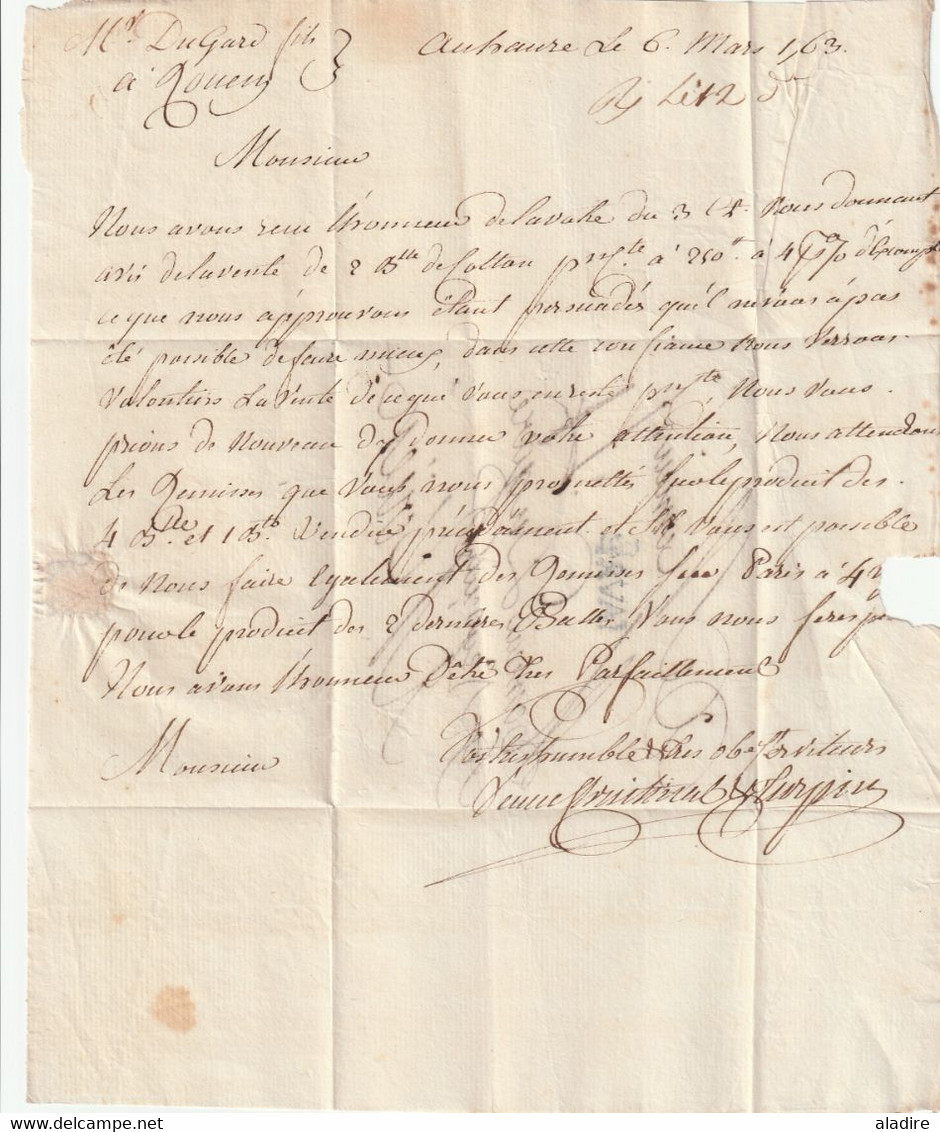 Mr. DuGard fils
à Rouen
Auhavre Le 6. Mars 1763.
Rj Le 12 do
Monsieur
Nous avons receu l'honneur delavotre du 3 Ct. Nous donnant
avis delavente de 2 Blle de Cotton à 250lt à 4 d'Escompte
ceque nous àpprouvons étant persuadés qu'il nevous à pas
été possible defaire mieux, dans cette confiance nous verrons
Valontiers La vente de cequi vous enreste Nous vous
prions de nouveau dy donner votre attention, Nous attendrons
Les Remises que vous nous promettés sur le produit des
4 Blle et 1 Bt. Vendue précédament et S'il vous est possible
de Nous faire Egalement des Remises sur Paris à
pour le produit des 2 dernieres Balles Vous nous ferés
Nous avons l'honneur D'être Tres Parfaittement
Monsieur
Vos tres humble & tres obe. Serviteurs
Veuve & Turpin
aladire